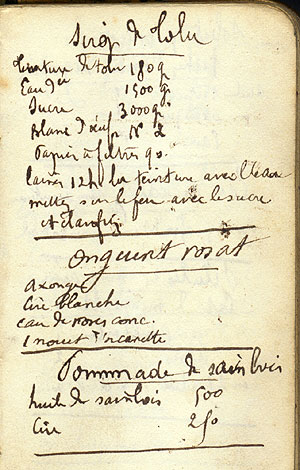 Sirop de Tolu
Teinture de tolu 180 g
Eau 1500 g
Sucre 3000 g
Blanc d'œuf N° 2
Papier à filtre q.s.
laissez 12h la teinture avec l'eau
mettez sur le feu avec le sucre
et clarifiez
Onguent rosat
axonge
Cire blanche
eau de roses conc.
1 nouet d'orcanette
Pommade de sainbois
huile de sainbois 500
Cire 250